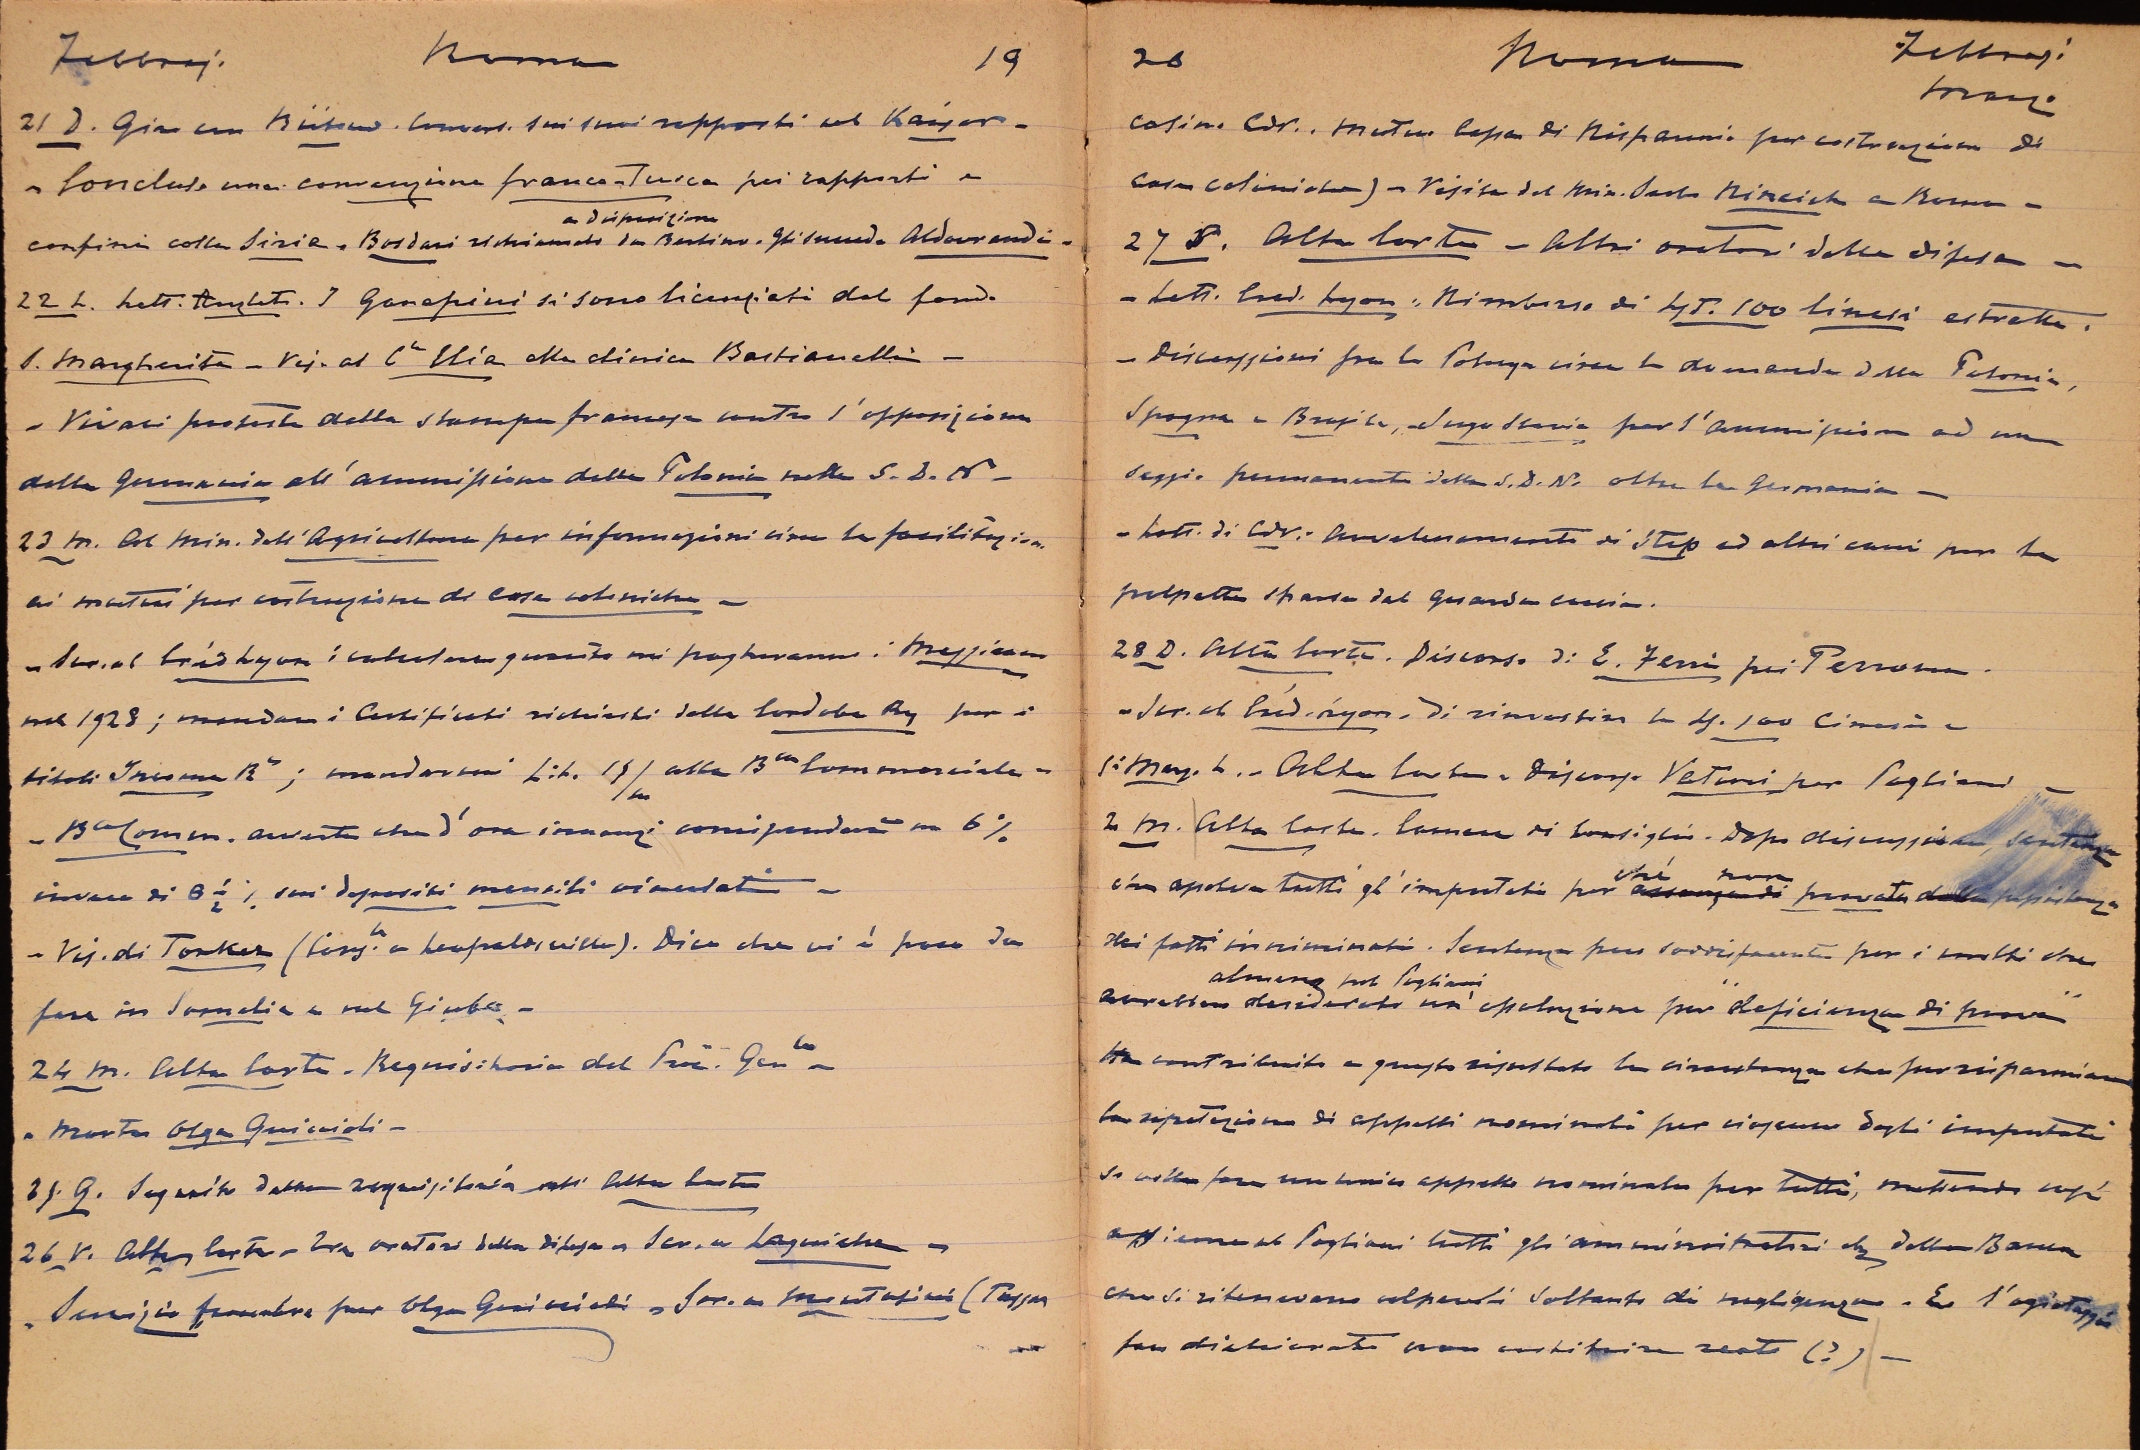 Febbraj. Roma 19
21 D. Giro con Bülow. Convers. sui suoi rapporti col Kaiser -
- Conclusa una convenzione franco-Turca pei rapporti e
a disposizione
confini colla Siria. Bosdari richiamato da Berlino. Gli succede Aldovrandi -
22 L. Lett. Anglet. I Ganapini si sono licenziati dal fondo
S. Margherita - Vis. al Cte Elia alla clinica Bastianelli -
- Vivaci proteste della stampa francese contro l'opposizione
della Germania all'ammissione della Polonia nella S. D. N -
23 M. Al Min. dell'Agricoltura per informazioni circa le facilitazioni
ai mutui per costruzione di case coloniche -
- Scr. al Créd Lyon: calcolare quanto mi pagheranno i Messicani
nel 1928; mandare i Certificati richiesti dalla Cordoba Ry per i
titoli Income Bs; mandarmi Lit. 15/m alla Bca Commerciale -
- Bca Comm. avverte che d'ora innanzi corrisponderà un 6%
invece di 6 1/2 % sui depositi mensili vincolati -
- Vis. di Tonker (Congle a Leopoldville). Dice che vi è poco da
fare in Somalia e nel Giuba -
24 M. Alta Corte. Requisitoria del Proc. Genle -
- Morta Olga Guiccioli -
25 G. Seguito della requisitoria all' Alta Corte
26 V. Alta Corte - Tre oratori della difesa - Scr. a Laguiche -
- Servizio funebre per Olga Guiccioli - Scr. a Montasini (Tassa
20 Roma Febbraj:
Marzo
casino Cdr.. Mutuo Cassa di Risparmio per costruzione di
case coloniche) - Visita del Min. Serbo Nincich a Roma -
27 S. Alta Corte - Altri oratori della difesa -
- Lett. Cred. Lyon: Rimborso di LgT. 100 Cinesi estratte.
- Discussioni fra le Potenze circa le domande della Polonia,
Spagna e Brasile, Jugo Slavia per l'ammissione ad un
seggio permanente della S.D.N. oltre la Germania -
- Lett. di Cdr.: Avvelenamento di Step ed altri cani per le
polpette sparse dal guarda caccia.
28 D. Alta Corte. Discorso di E. Ferri pei Perrone.
- Scr. al Créd. Lyon. di rinvestire le Lg. 100 Cinesi -
1° Marz. L. - Alta Corte - Discorso Vettori per Pogliani -
2 M. Alta Corte. Camera di Consiglio. Dopo discussione, sentenza
ché non
che assolve tutti gl'imputati per assenza di provata della sussistenza
dei fatti incriminati. Sentenza poco soddisfacente per i molti che
almeno pel Pogliani
avrebbero desiderato un'assoluzione per "deficienza di prove"
Ha contribuito a questo risultato la circostanza che per risparmiare
la ripetizione di appelli nominali per ciascuno degli imputati
si volle fare un unico appello nominale per tutti, mettendo così
assieme al Pogliani tutti gli amministratori della Banca
che si ritenevano colpevoli soltanto di negligenza. E l'agiotaggio
fu dichiarato non costituire reato (?) -